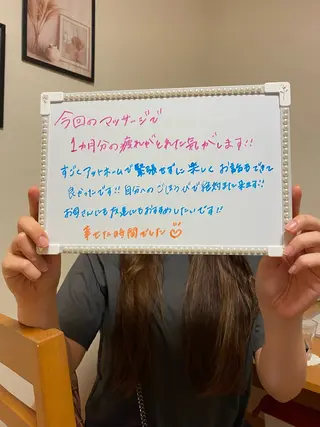 今回のマッサージで
1ヵ月分の疲れがとれた気がします!!
すごくアットホームで緊張せずに楽しくお話もできて
良かったです!! 自分へのごほうびで絶対また来ます!!
お母さんにも友達にもおすすめしたいです!!
幸せな時間でした